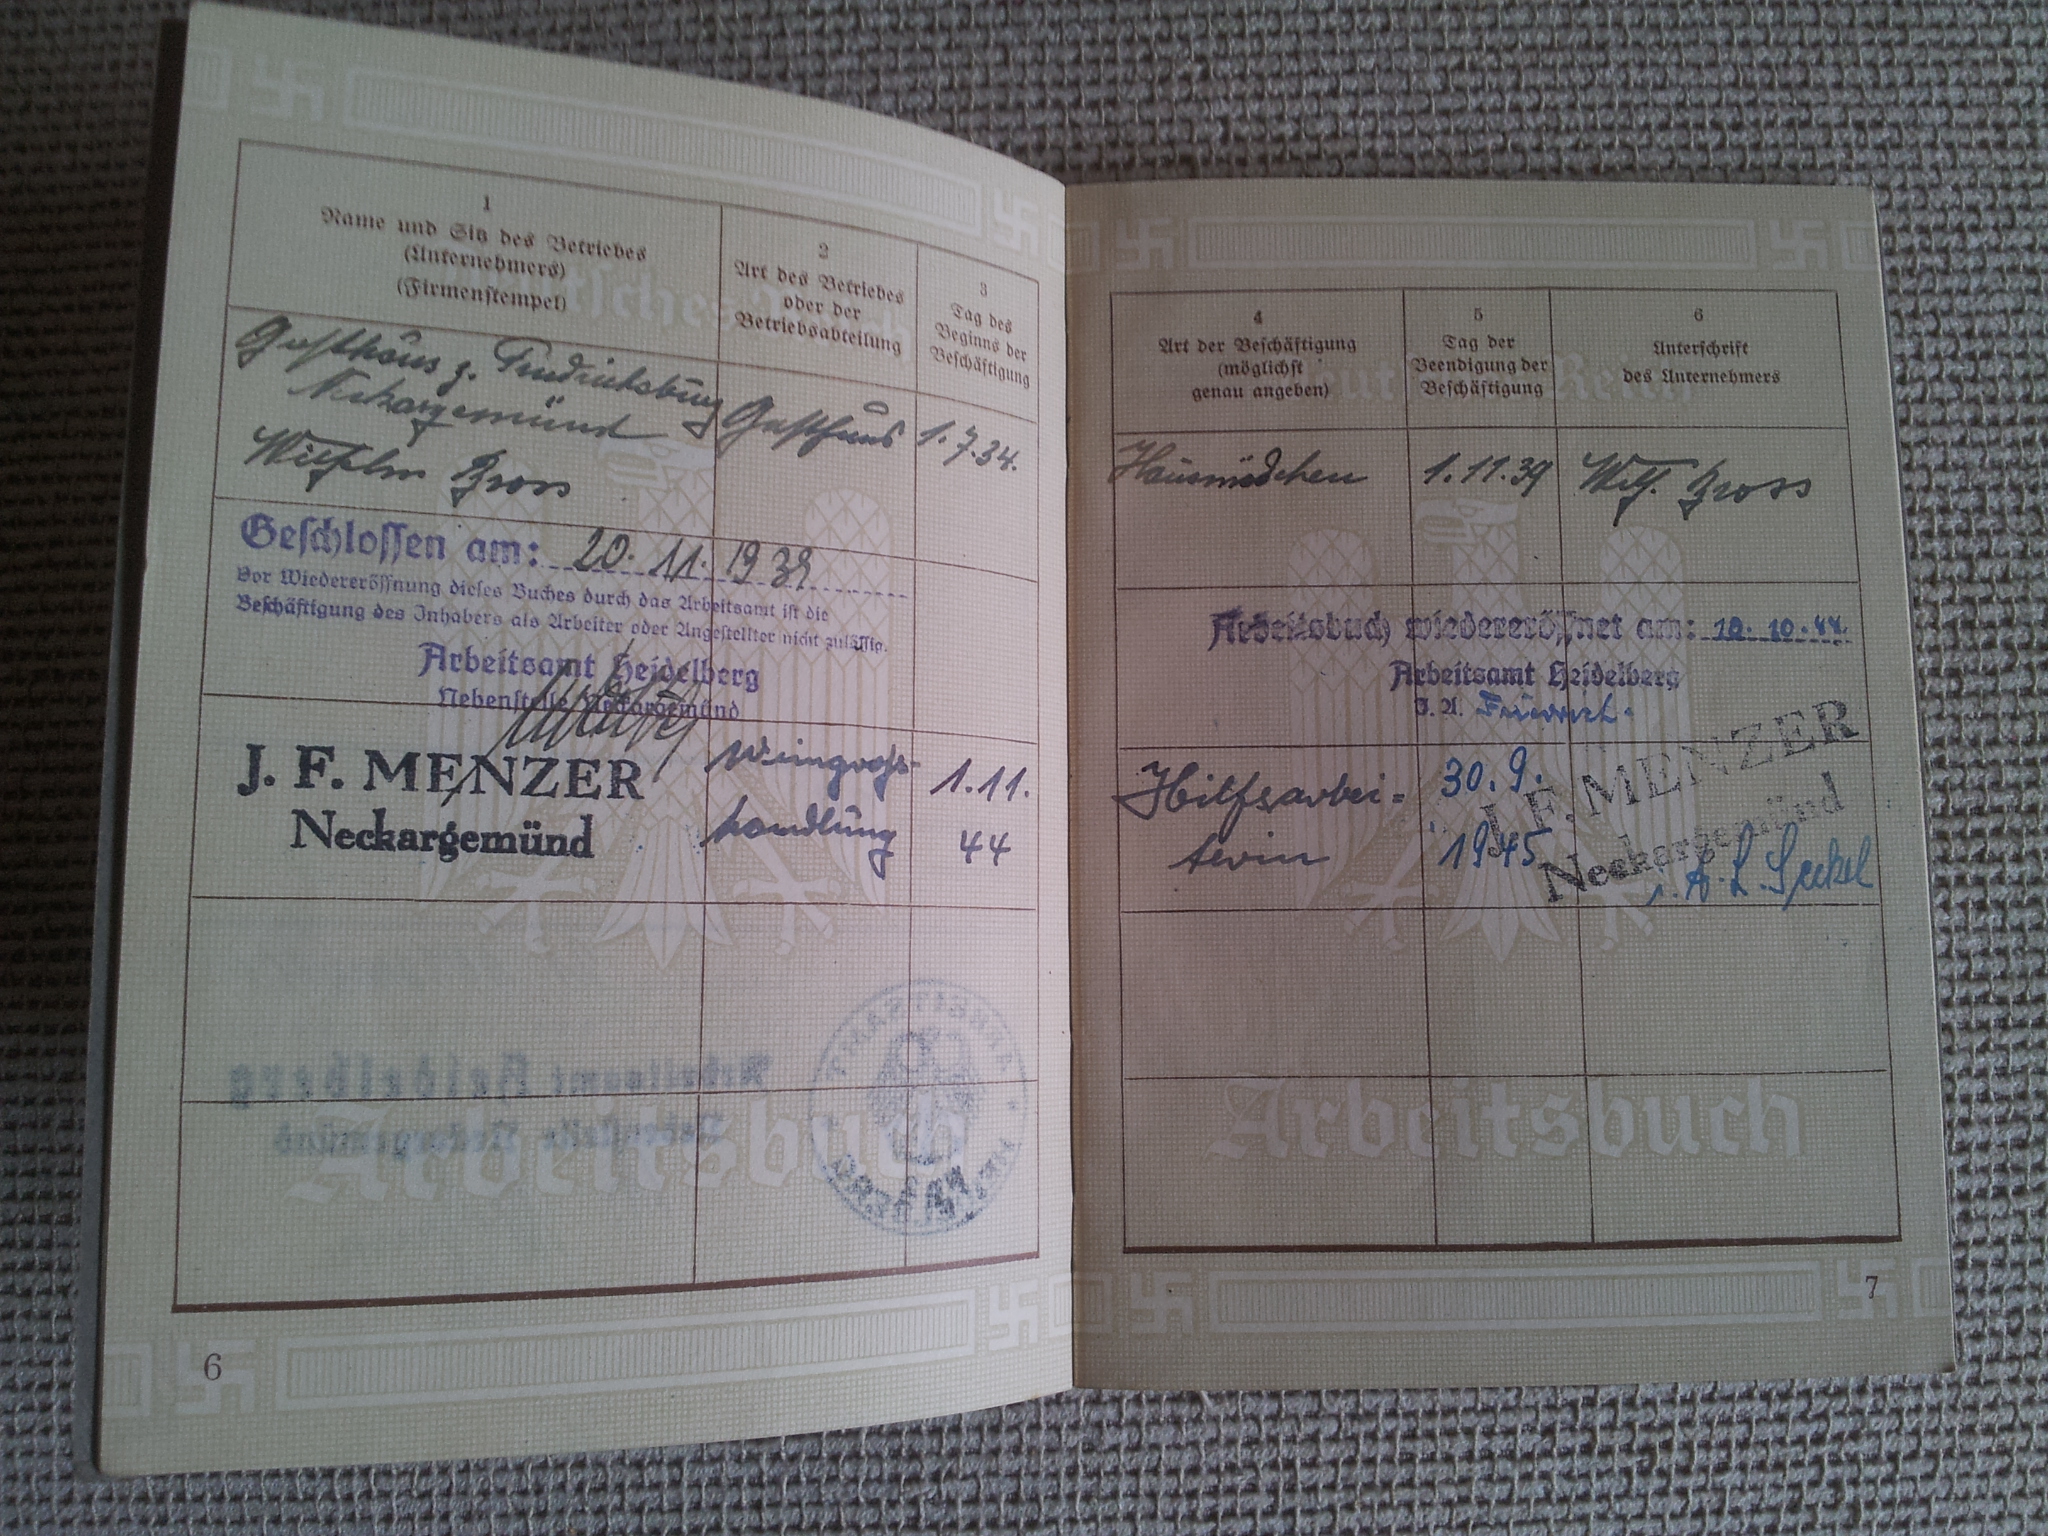 1
Name und Sitz des Betriebes
(Unternehmers)
(Firmenstempel)
2
Art des Betriebes
oder der
Betriebsabteilung
3
Tag des
Beginns der
Beschäftigung
Gasthaus z. Friedrichsburg
Neckargemünd
Wilhelm Gross
Gasthaus
1.7.34.
Geschlossen am: 20. 11. 1939
Vor Wiedereröffnung dieses Buches durch das Arbeitsamt ist die
Beschäftigung des Inhabers als Arbeiter oder Angestellter nicht zulässig.
Arbeitsamt Heidelberg
Nebenstelle Neckargemünd
J. F. MENZER
Neckargemünd
Weingross-
handlung
1.11.
44
Arbeitsamt Heidelberg
Nebenstelle Neckargemünd
ARBEITSAMT
HEIDELBERG
Deutsches Reich
Arbeitsbuch
6
4
Art der Beschäftigung
(möglichst
genau angeben)
5
Tag der
Beendigung der
Beschäftigung
6
Unterschrift
des Unternehmers
Hausmädchen
1.11.39
Wilh. Gross
Arbeitsbuch wiedereröffnet am: 10.10.44.
Arbeitsamt Heidelberg
I. A. Friedrich.
Hilfsarbei=
terin
30.9.
1945
J. F. MENZER
Neckargemünd
i. A. L.
Deutsches Reich
Arbeitsbuch
7